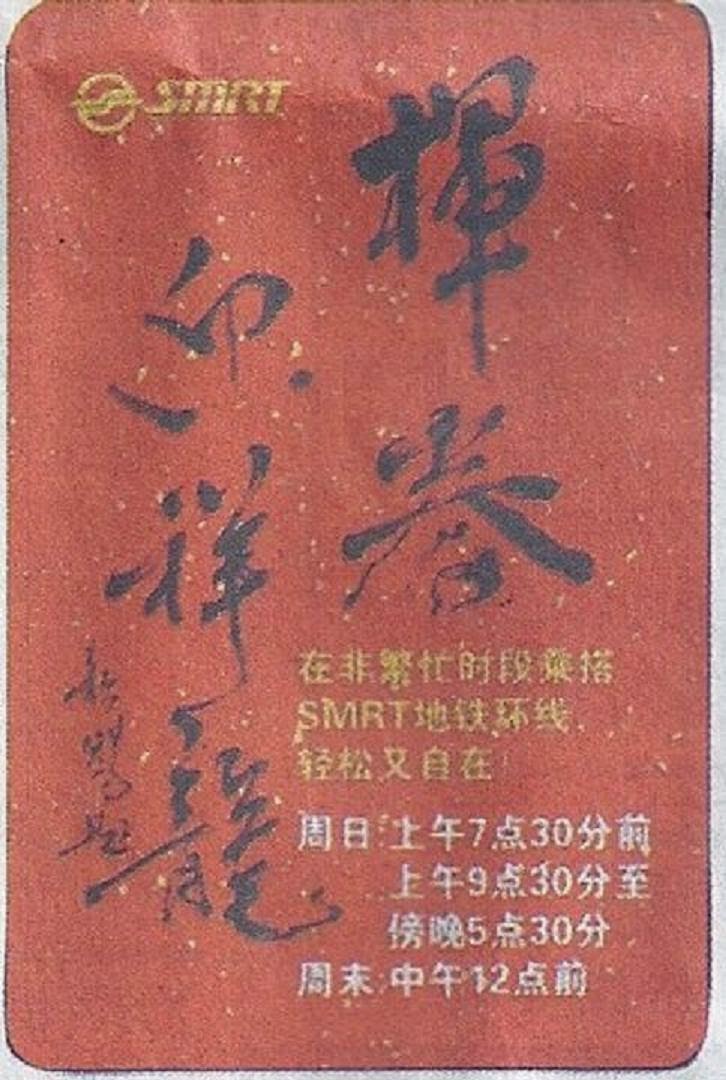 SMRT
揮春
迎祥龍
在非繁忙时段乘搭
SMRT地铁环线,
轻松又自在!
周日:上午7点30分前
上午9点30分至
傍晚5点30分
周末:中午12点前